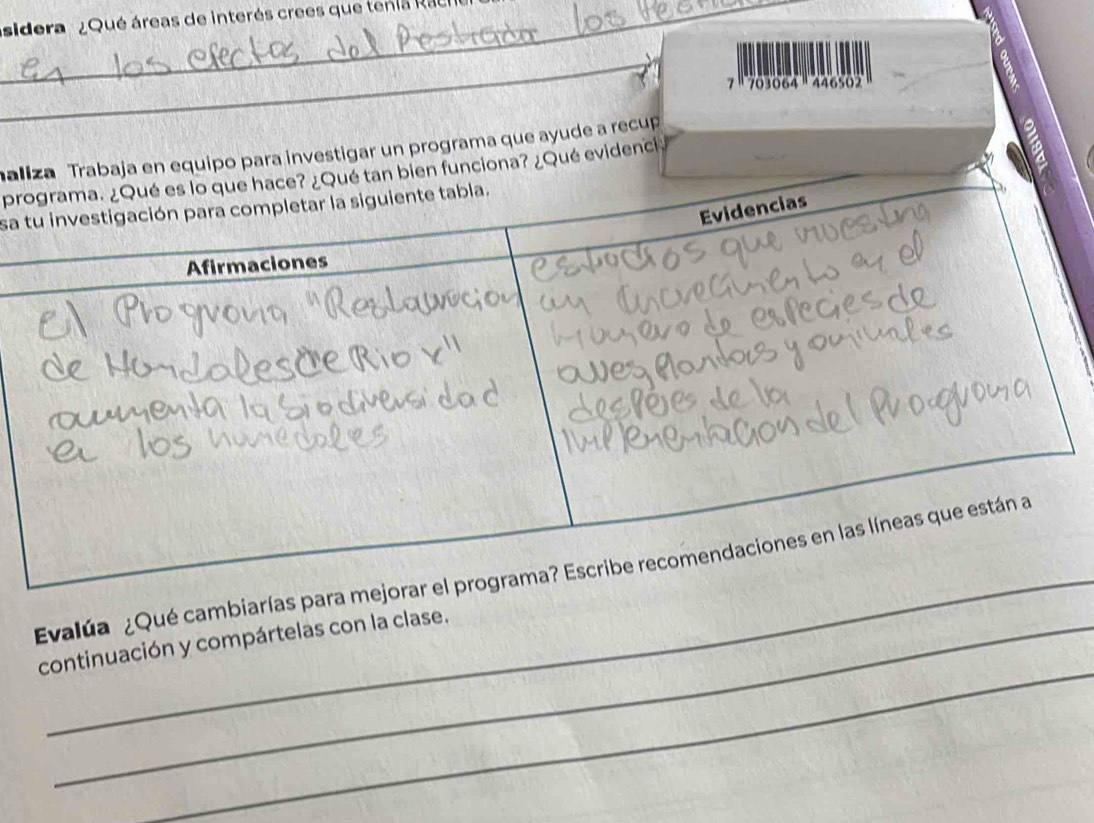 sidera ¿Qué áreas de interés crees que tenía
en los efectos del Pestrador los
7 703064 446502
naliza Trabaja en equipo para investigar un programa que ayude a recup
programa. ¿Qué es lo que hace? ¿Qué tan bien funciona? ¿Qué evidenci
sa tu investigación para completar la siguiente tabla.
Afirmaciones
Evidencias
el Programa "Restauracion
de Homdales de Rior"
aumenta la biodiversidad
en los humedales
estudios que nuestra
un incremento en el
número de especies de
aves plantas y animales
despúes de la
implementacion del Programa
Evalúa ¿Qué cambiarías para mejorar el programa? Escribe recomendaciones en las líneas que están a
continuación y compártelas con la clase.